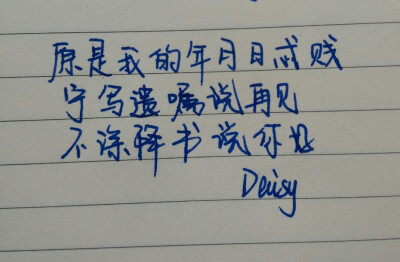 原是我的年月日忒贱
宁写遗嘱说再见
不涂辞书说你好
Deisy